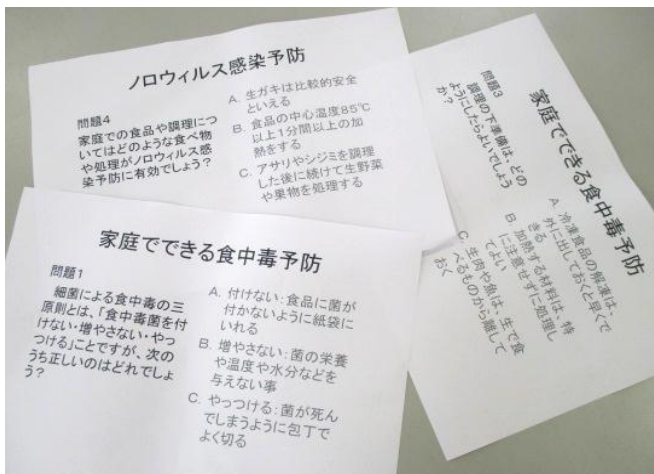 ノロウィルス感染予防
問題4
家庭での食品や調理につ
いてはどのような食べ物
や処理がノロウィルス感
染予防に有効でしょう？
A. 生ガキは比較的安全
といえる
B. 食品の中心温度85℃
以上1分間以上の加
熱をする
C. アサリやシジミを調理
した後に続けて生野菜
や果物を処理する
家庭でできる食中毒予防
問題3
調理の下準備は、どの
ようにしたらよいでしょう
か？
A. 冷凍食品の解凍は、
外に出しておくと早くで
きる
B 加熱する材料は、特
に注意せずに処理し
てよい
C. 生肉や魚は、生で食
べるものから離して
おく
家庭でできる食中毒予防
問題1
細菌による食中毒の三
原則とは、「食中毒菌を付
けない・増やさない・やっ
つける」ことですが、次の
うち正しいのはどれでしょ
う？
A. 付けない：食品に菌が
付かないように紙袋に
いれる
B. 増やさない：菌の栄養
や温度や水分などを
与えない事
C. やっつける：菌が死ん
でしまうように包丁で
よく切る